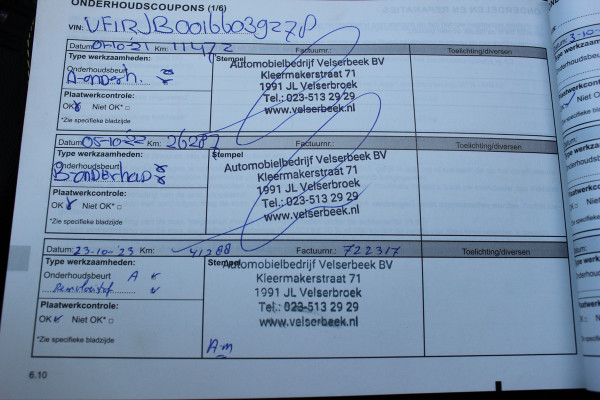 ONDERHOUDSCOUPONS (1/6)
VIN: VF1RJB00166039278
Datum: 01-10-21 Km: 11472 Factuurnr.: Toelichting/diversen
Type werkzaamheden:
Onderhoudsbeurt
A-onderh.
Plaatwerkcontrole:
OK Niet OK*
*Zie specifieke bladzijde
Stempel
Automobielbedrijf Velserbeek BV
Kleermakerstraat 71
1991 JL Velserbroek
Tel.: 023-513 29 29
www.velserbeek.nl
Datum: 05-10-22 Km: 26287 Factuurnr.: Toelichting/diversen
Type werkzaamheden:
Onderhoudsbeurt
B-onderhoud
Plaatwerkcontrole:
OK Niet OK*
*Zie specifieke bladzijde
Stempel
Automobielbedrijf Velserbeek BV
Kleermakerstraat 71
1991 JL Velserbroek
Tel.: 023-513 29 29
www.velserbeek.nl
Datum: 23-10-23 Km: 41288 Factuurnr.: 722317 Toelichting/diversen
Type werkzaamheden:
Onderhoudsbeurt A
Plaatwerkcontrole:
OK Niet OK*
*Zie specifieke bladzijde
Stempel
Automobielbedrijf Velserbeek BV
Kleermakerstraat 71
1991 JL Velserbroek
Tel.: 023-513 29 29
www.velserbeek.nl
Am
6.10